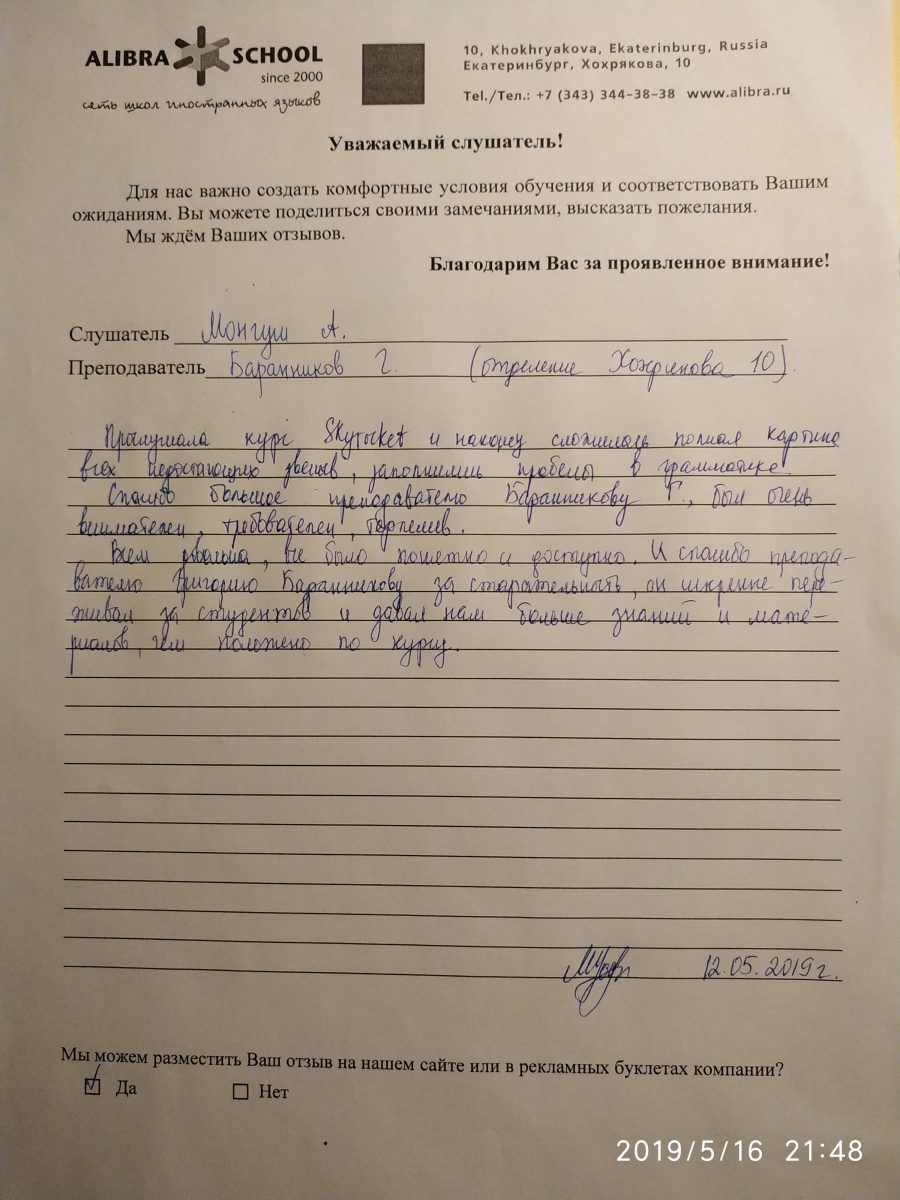 ALIBRA SCHOOL
since 2000
сеть школ иностранных языков
10, Khokhryakova, Ekaterinburg, Russia
Екатеринбург, Хохрякова, 10
Tel./Тел.: +7 (343) 344-38-38 www.alibra.ru
Уважаемый слушатель!
Для нас важно создать комфортные условия обучения и соответствовать Вашим
ожиданиям. Вы можете поделиться своими замечаниями, высказать пожелания.
Мы ждём Ваших отзывов.
Благодарим Вас за проявленное внимание!
Слушатель Монгуш А.
Преподаватель Баранников Г. (отделение 10).
Прослушала курс Skyrocket и наконец сложилась полная картина
всех недостающих звеньев, заполнились пробелы в грамматике!
Спасибо большое преподавателю Баранникову Г., был очень
внимателен, требователен, терпелив.
Всем довольна, все было понятно и доступно. И спасибо препода-
вателю Григорию Баранникову за старательность, он искренне пере-
живал за студентов и давал нам больше знаний и мате-
риалов, чем положено по курсу.
12.05.2019 г.
Мы можем разместить Ваш отзыв на нашем сайте или в рекламных буклетах компании?
Да Нет
2019/5/16 21:48